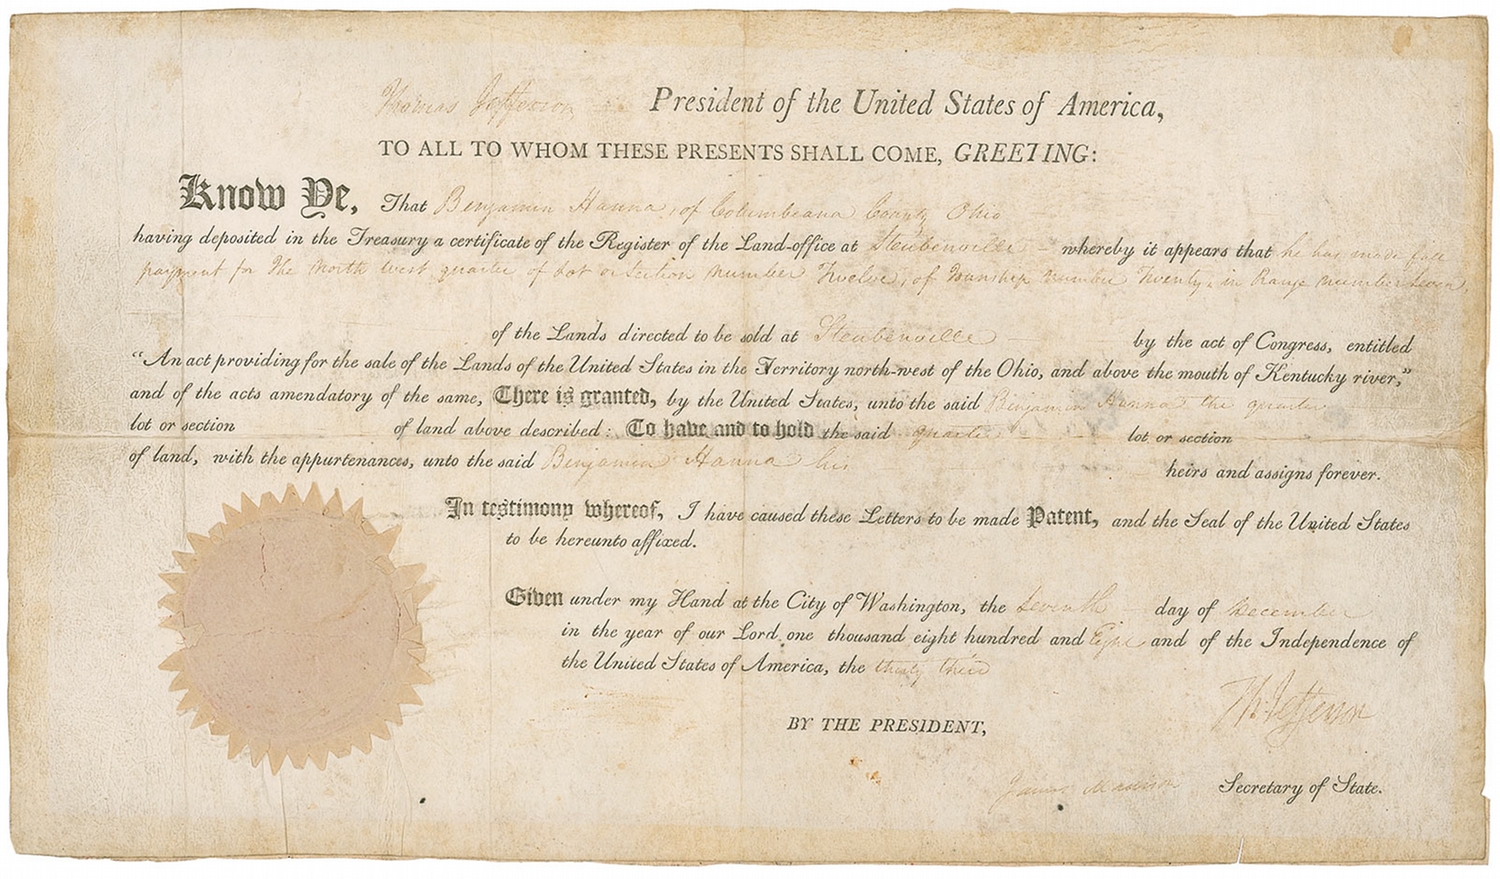 Thomas Jefferson President of the United States of America,
TO ALL TO WHOM THESE PRESENTS SHALL COME, GREETING:
Know Ye, That Benjamin Hanna, of Columbeana County Ohio
having deposited in the Treasury a certificate of the Register of the Land-office at Steubenville whereby it appears that he has made full
payment for the North west quarter of Lot or Section number Twelve, of Township number Twenty, in Range number Seven,
of the Lands directed to be sold at Steubenville by the act of Congress, entitled
"An act providing for the sale of the Lands of the United States in the Territory north-west of the Ohio, and above the mouth of Kentucky river,"
and of the acts amendatory of the same, There is granted, by the United States, unto the said Benjamin Hanna the quarter
lot or section of land above described: To have and to hold the said quarter lot or section
of land, with the appurtenances, unto the said Benjamin Hanna his heirs and assigns forever.
In testimony whereof, I have caused these Letters to be made Patent, and the Seal of the United States
to be hereunto affixed.
Given under my Hand at the City of Washington, the Seventh day of December
in the year of our Lord one thousand eight hundred and Eight and of the Independence of
the United States of America, the thirty third
Th: Jefferson
BY THE PRESIDENT,
James Madison Secretary of State.